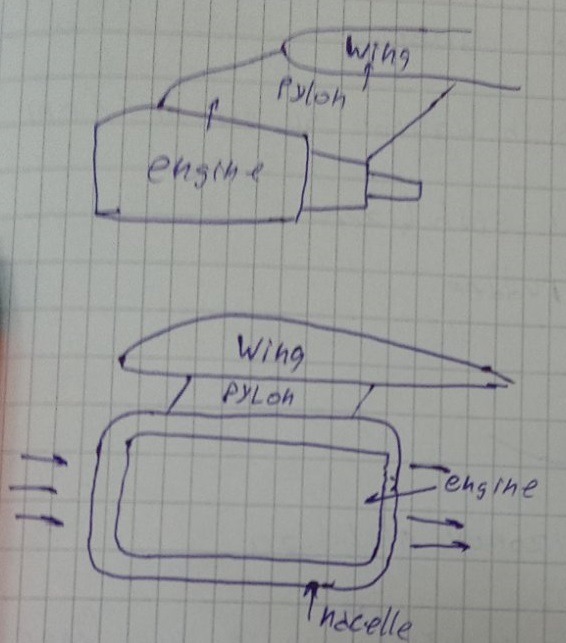 Wing
Pylon
engine
Wing
PYLON
engine
nacelle